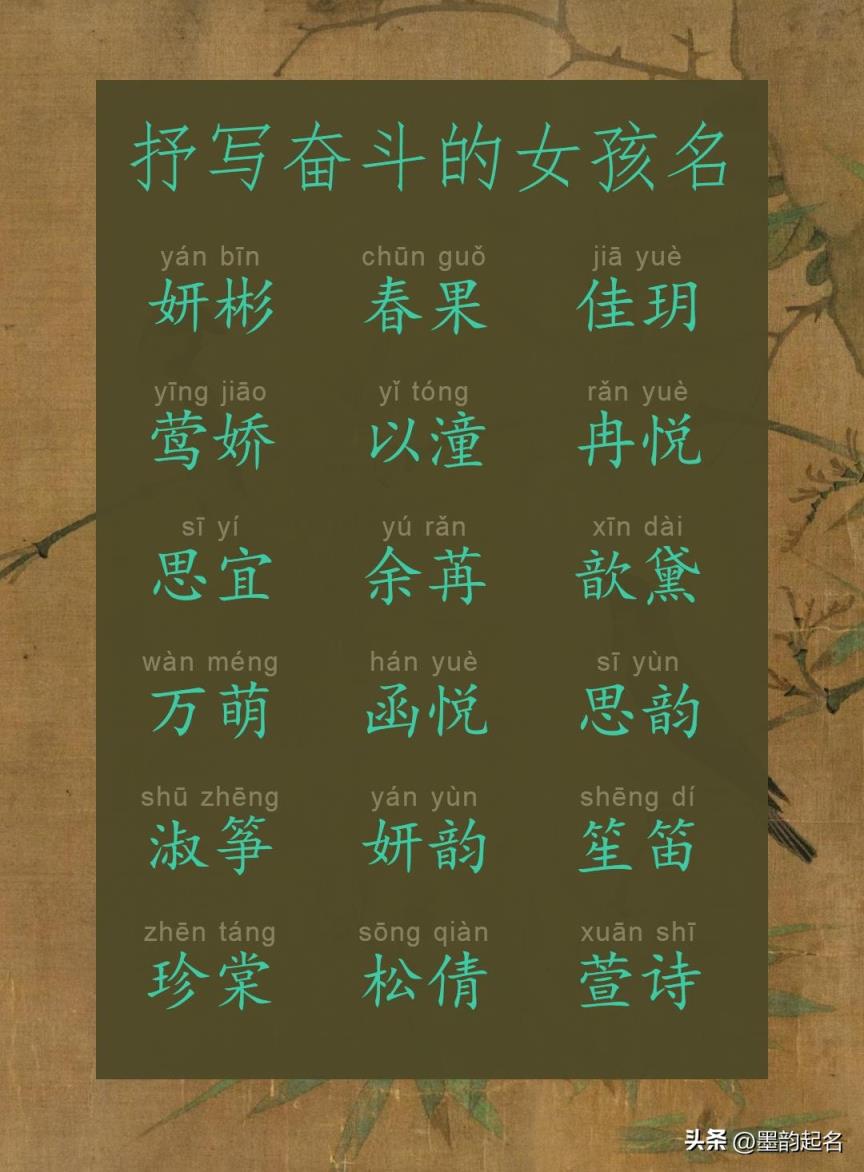 抒写奋斗的女孩名
yán bīn chūn guǒ jiā yuè
妍彬 春果 佳玥
yīng jiāo yǐ tóng rǎn yuè
莺娇 以潼 冉悦
sī yí yú rǎn xīn dài
思宜 余苒 歆黛
wàn méng hán yuè sī yùn
万萌 函悦 思韵
shū zhēng yán yùn shēng dí
淑筝 妍韵 笙笛
zhēn táng sōng qiàn xuān shī
珍棠 松倩 萱诗
头条 @墨韵起名